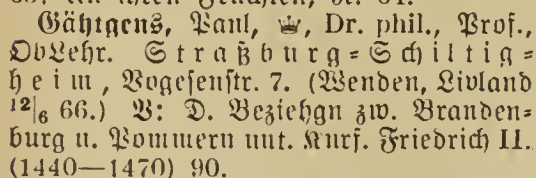 Gähtgens, Paul, Dr. phil., Prof.,
ObLehr. Straßburg=Schiltig=
heim, Vogesenstr. 7. (Wenden, Livland
12|6 66.) V: D. Beziehgn zw. Branden=
burg u. Pommern unt. Kurf. Friedrich II.
(1440—1470) 90.